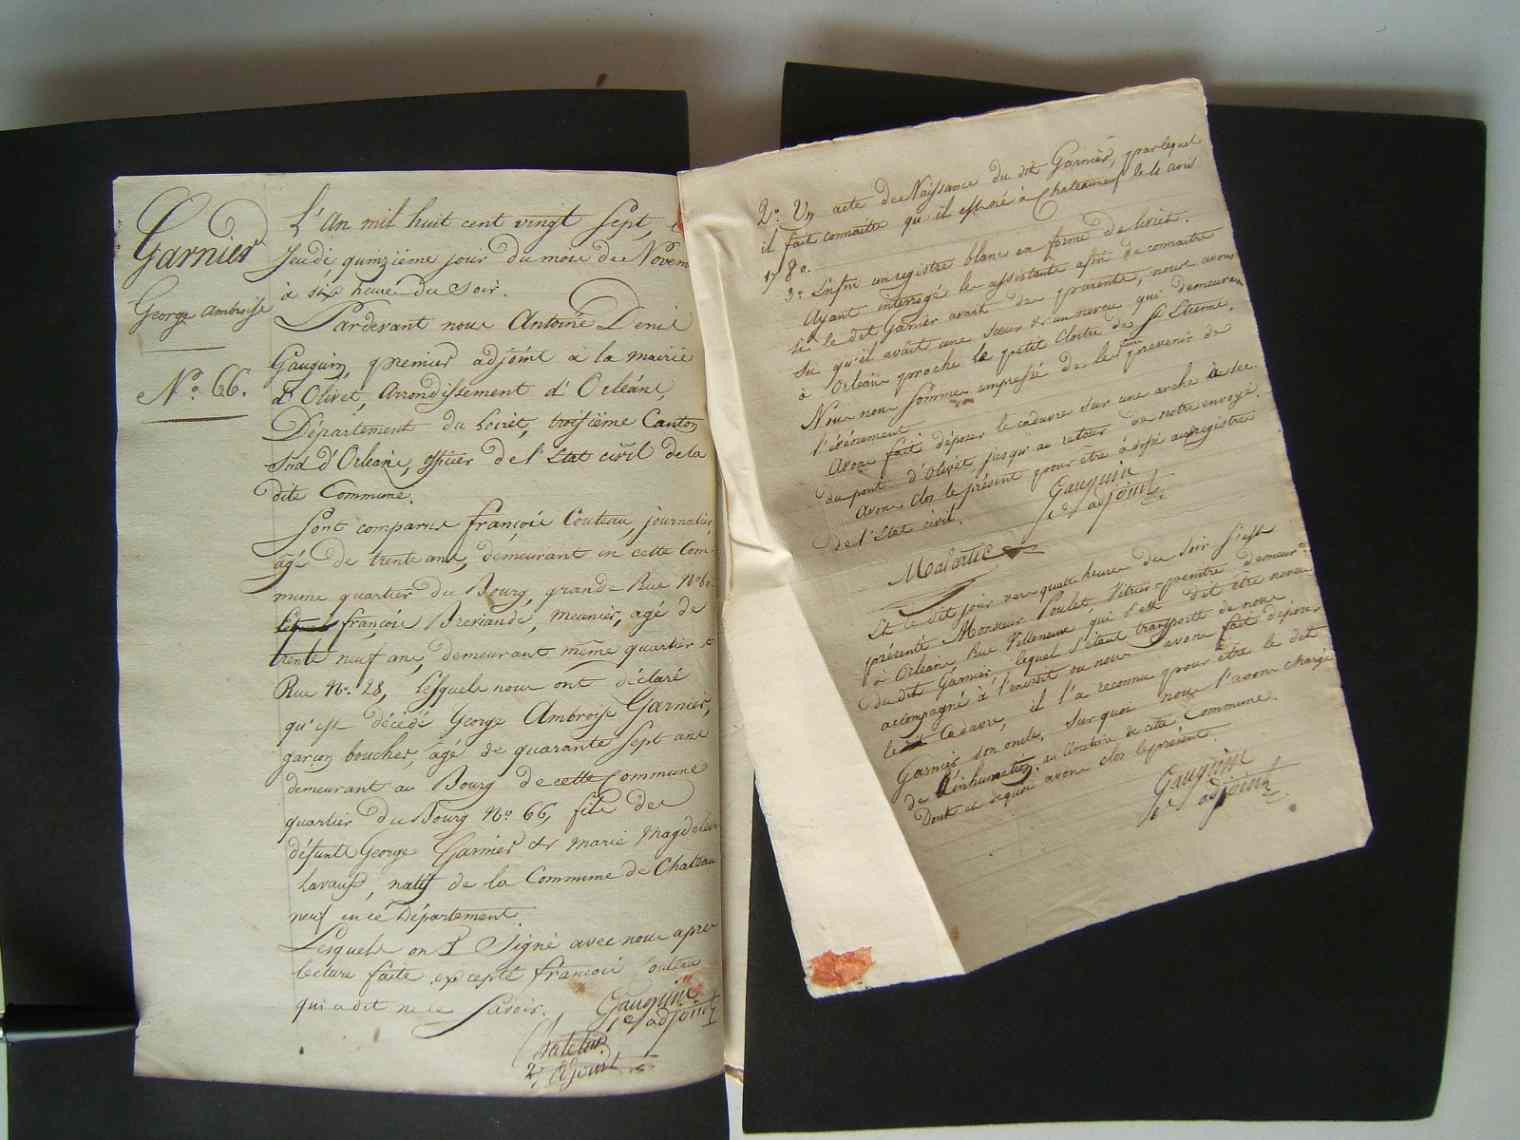 Garnier
George Ambroise
No. 66.
L'An mil huit cent vingt Sept, le
Jeudi quinzième jour du mois de Novem
à six heures du soir.
Pardevant nous Antoine Denis
Gauguin, premier adjoint à la mairie
d'Olivet, Arrondissement d'Orléans,
Département du Loiret, troisième Canton
Sud d'Orléans, officier de l'Etat civil de la
dite Commune.
Sont comparus françois Couteau, journalier
âgé de trente ans, demeurant en cette Com-
mune quartier du Bourg, grande Rue No
françois Breviande, meunier, agé de
trente neuf ans, demeurant même quartier &
Rue No. 28, Lesquels nous ont déclaré
qu'est décédé George Ambroise Garnier,
garçon boucher, âgé de quarante sept ans
demeurant au Bourg de cette Commune
quartier du Bourg No. 66, fils de
défunts George Garnier & Marie Magdeleine
lavaud, natif de la Commune de Chateau
neuf en ce Département.
Lesquels ont Signé avec nous après
lecture faite excepté françois Couteau
qui a dit ne le Savoir. Gauguin
adjoint
2e adjoint
2o. Un acte de Naissance du dit Garnier, par lequel
il fait connaître qu'il est né à Chateauneuf le 4 avril
178o.
3o. Enfin un registre blanc en forme de livret.
Ayant interrogé les assistants afin de connaitre
si le dit Garnier avait des parents, nous avons
su qu'il avait une soeur & un neveu qui demeurent
à Orléans proche le petit Cloitre de St. Etienne.
Nous nous sommes empressés de les prévenir de
l'événement.
Avons fait déposer le cadavre sur une arche à sec
du pont d'Olivet jusqu'au retour de notre envoyé.
Avons clos le présent pour être déposé au registre
de l'Etat civil.
Gauguin
adjoint
Malartic
Et ce dit jour vers quatre heures du soir s'est
présenté Monsieur Poulet, Vitrier-peintre demeurt.
à Orléans, Rue Villeneuve qui s'est dit être neveu
du dit Garnier, lequel s'étant transporté de nous
accompagné à l'endroit où nous avons fait déposer
le Cadavre, il l'a reconnu pour être le dit
Garnier son oncle, Surquoi nous l'avons chargé
de l'inhumation au Cimetière de cette Commune.
Dont et dequoi avons clos le présent.
Gauguin
adjoint